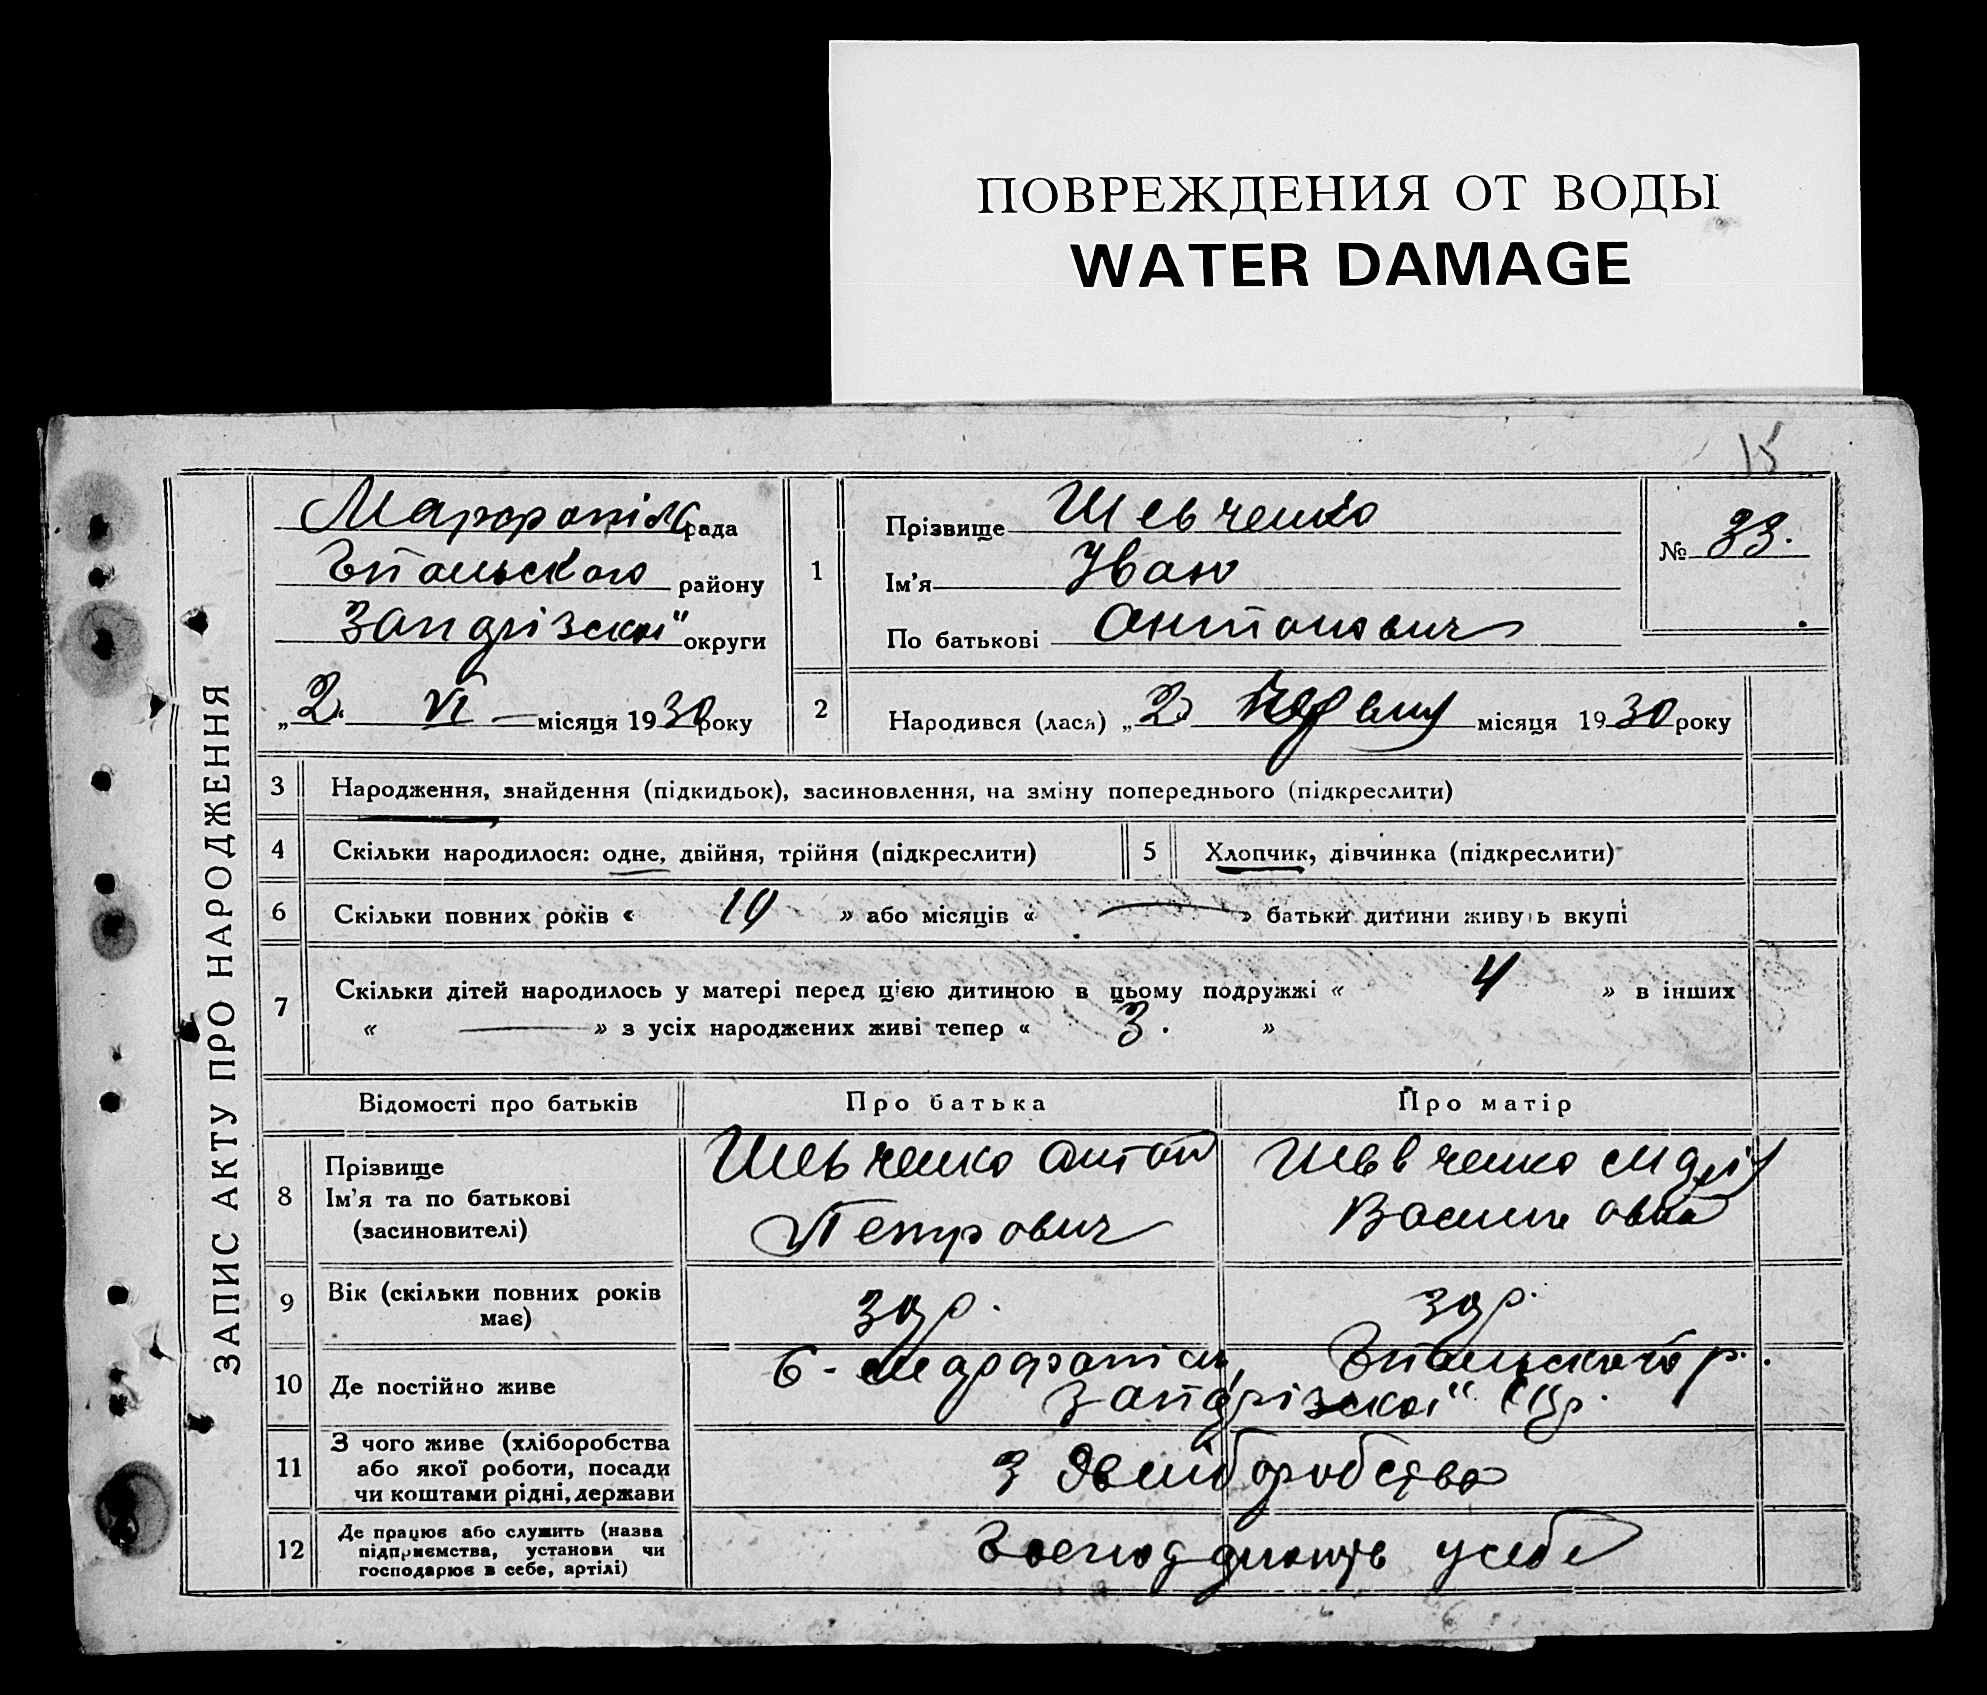 ПОВРЕЖДЕНИЯ ОТ ВОДЫ
WATER DAMAGE
15
ЗАПИС АКТУ ПРО НАРОДЖЕННЯ
Марфопіль рада
району
округи
„2“ VI місяця 1930 року
1
Прізвище Шевченко
Ім'я Іван
По батькові Антонович
№ 33.
2
Народився (лася) „2“ червня місяця 1930 року
3 Народження, знайдення (підкидьок), засиновлення, на зміну попереднього (підкреслити)
4 Скільки народилося: одне, двійня, трійня (підкреслити)
5 Хлопчик, дівчинка (підкреслити)
6 Скільки повних років « 10 » або місяців « — » батьки дитини живуть вкупі
7 Скільки дітей народилось у матері перед цією дитиною в цьому подружжі « 4 » в інших
« — » з усіх народжених живі тепер « 3. »
Відомості про батьків Про батька Про матір
8 Прізвище
Ім'я та по батькові
(засиновителі)
Шевченко Антон
Петрович
Шевченко
Василівна
9 Вік (скільки повних років
має)
30 р.
30 р.
10 Де постійно живе
11 З чого живе (хліборобства
або якої роботи, посади
чи коштами рідні, держави
З
12 Де працює або служить (назва
підприємства, установи чи
господарює в себе, артілі)
усебе